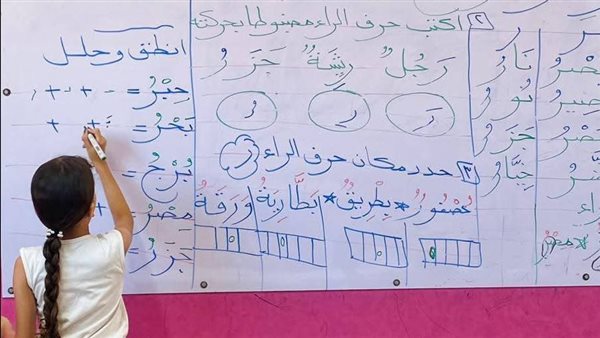 ٢ اكتب حرف الراء مضبوطا بحركته
رَجُلٌ رِيشَةٌ جَزَرٌ
رَ رِ رُ
٣ حدد مكان حرف الراء
عُصْفُورٌ * بِطْرِيقٌ * بَطَّارِيَةٌ وَرَقَةٌ
انطق وحلل
حِبْرٌ = + +
بَحْرٌ = + +
بُرْجٌ =
مِصْرُ = +
جَزَرٌ =
نَارٌ
نُورٌ
جَزَرٌ